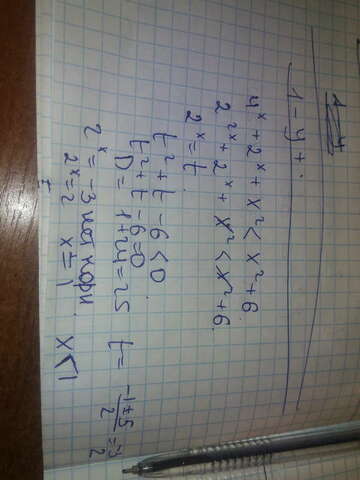 1 - 4 + .
4ˣ + 2ˣ + x² < x² + 6
2²ˣ + 2ˣ + x² < x² + 6
2ˣ = t
t² + t - 6 < 0
t² + t - 6 = 0
D = 1 + 24 = 25 t = (-1 ± 5)/2 = -3 2
2ˣ = -3 нет корн.
2ˣ = 2
x = 1 x < 1